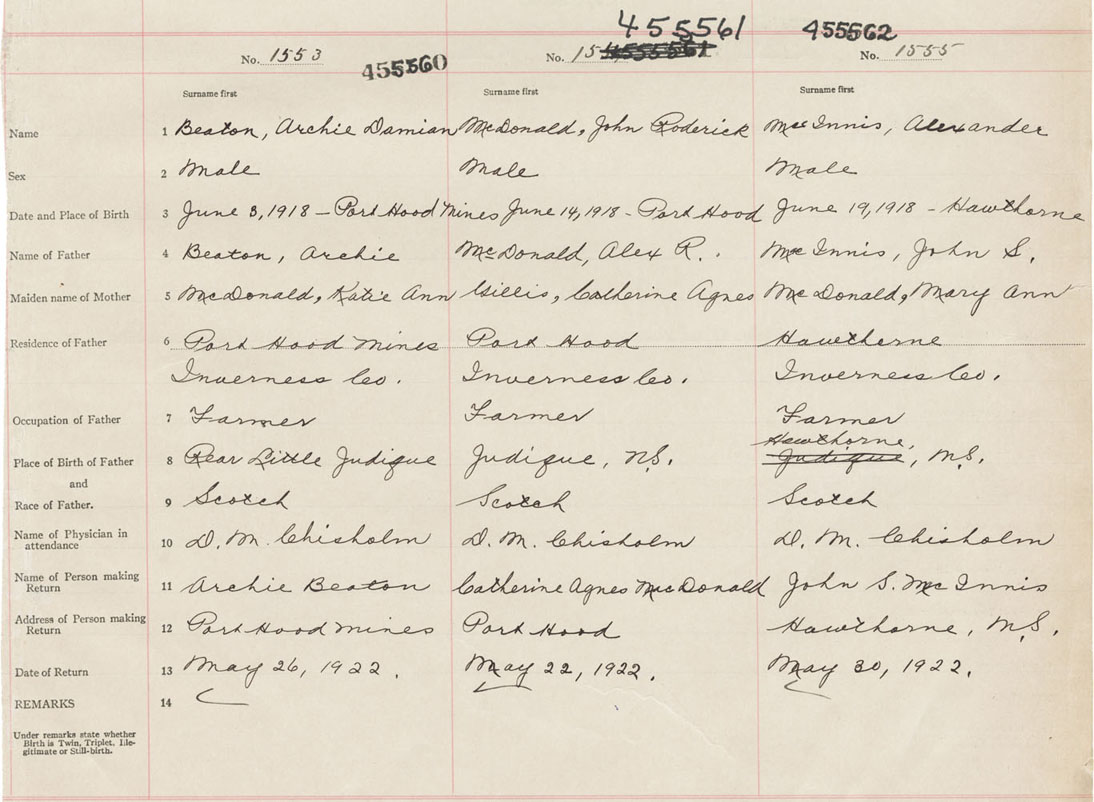 455561 455562
No. 1553 455560 No. 15 No. 1555
Surname first Surname first Surname first
Name 1 Beaton, Archie Damian McDonald, John Roderick McInnis, Alexander
Sex 2 Male Male Male
Date and Place of Birth 3 June 3, 1918 - Port Hood Mines June 14, 1918 - Port Hood June 19, 1918 - Hawthorne
Name of Father 4 Beaton, Archie McDonald, Alex R. McInnis, John S.
Maiden name of Mother 5 McDonald, Katie Ann Gillis, Catherine Agnes McDonald, Mary Ann
Residence of Father 6 Port Hood Mines Port Hood Hawthorne
Inverness Co. Inverness Co. Inverness Co.
Occupation of Father 7 Farmer Farmer Farmer
Hawthorne,
Place of Birth of Father 8 Rear Little Judique Judique, N.S. Judique, N.S.
and
Race of Father. 9 Scotch Scotch Scotch
Name of Physician in
attendance 10 D. M. Chisholm D. M. Chisholm D. M. Chisholm
Name of Person making
Return 11 Archie Beaton Catherine Agnes MacDonald John S. McInnis
Address of Person making
Return 12 Port Hood Mines Port Hood Hawthorne, N.S.
Date of Return 13 May 26, 1922. May 22, 1922. May 30, 1922.
REMARKS 14
Under remarks state whether
Birth is Twin, Triplet, Ille-
gitimate or Still-birth.